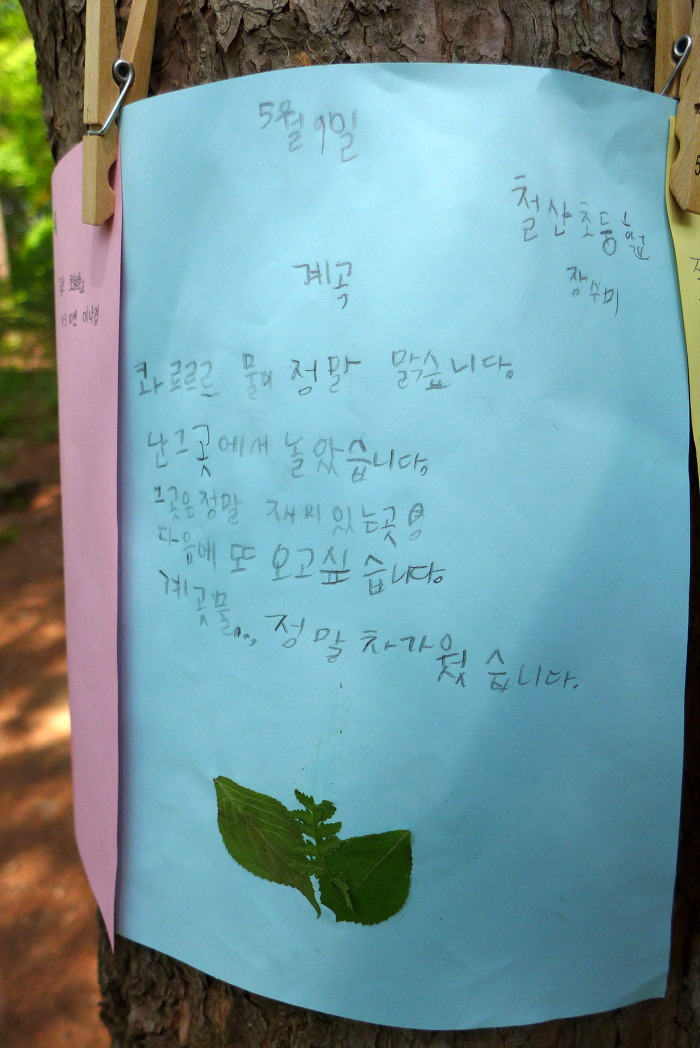 5월 9일
철산초등학교
장수미
계곡
콰르르르 물이 정말 맑습니다.
난 그 곳에서 놀았습니다.
그곳은 정말 재미있는곳
다음에 또 오고싶습니다.
계곳물..., 정말 차가웠습니다.